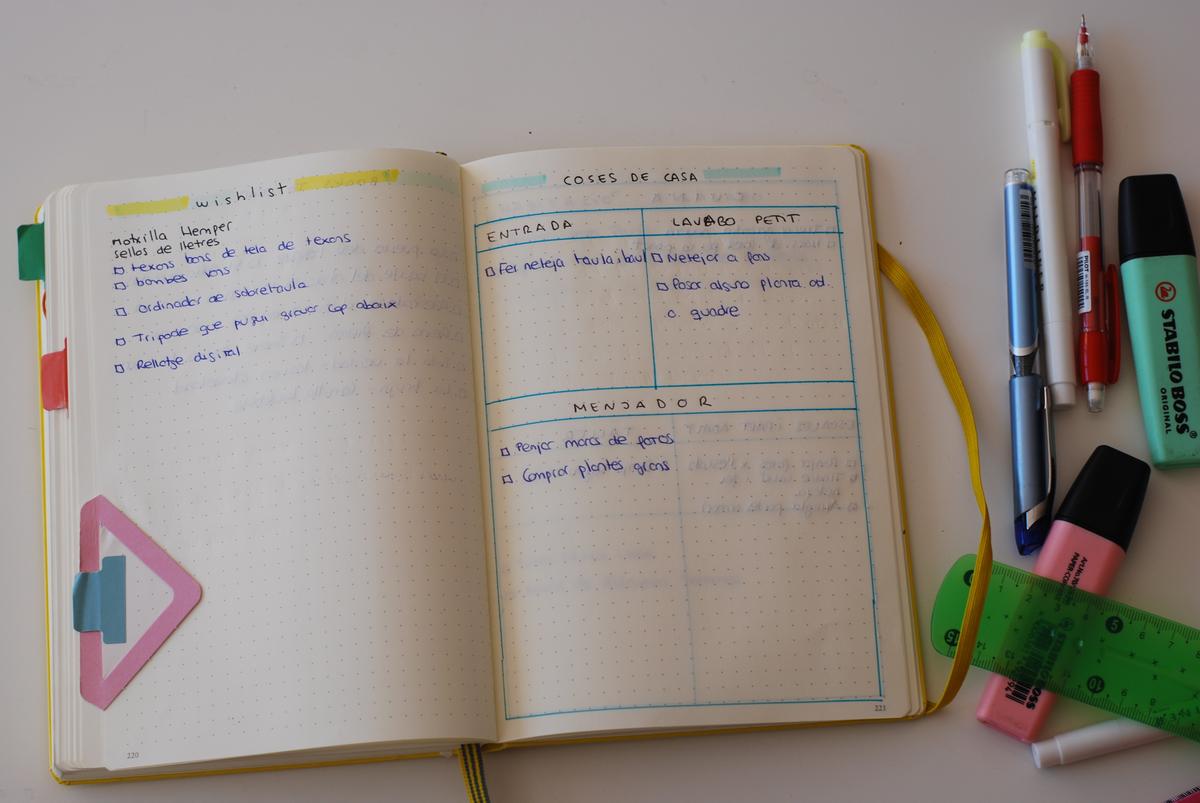 wishlist
motxilla Hemper
sellos de lletres
texans bons de tela de texans
bambes vans
ordinador de sobretaula
Tripode que pugui gravar cap abaix
Rellotge digital
220
COSES DE CASA
ENTRADA
Fer neteja taula i baul
LAVABO PETIT
Netejar a fons
Posar alguna planta
o. quadre
MENJADOR
Penjar marcs de fotos
Comprar plantes grans
221
STABILO BOSS
ORIGINAL
PILOT
STABILO BOSS
5
10
15